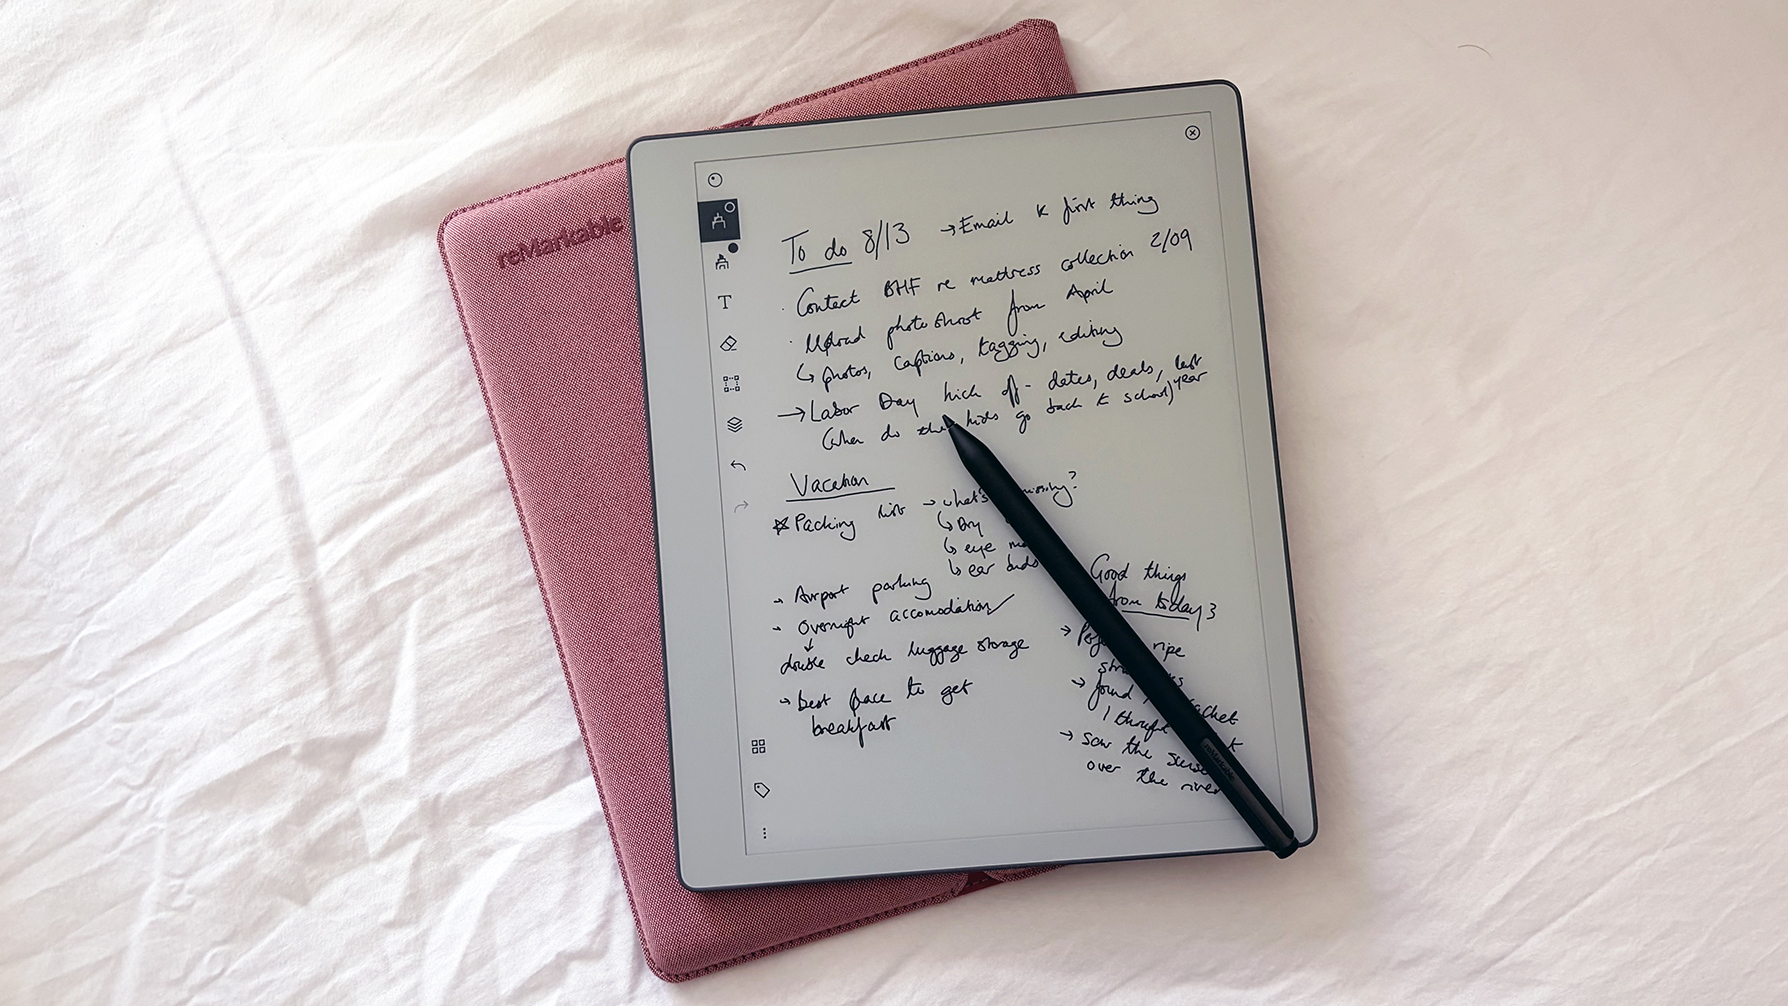 reMarkable
To do 8/13 → Email K first thing
· Contact BHF re mattress collection 2/09
· Upload photoshoot from April
↳ photos, captions, tagging, editing
→ Labor Day kick off - dates, deals, last year
(When do the kids go back to school)
Vacation
☆ Packing list → what's missing?
↳ Dry
↳ eye
↳ ear buds
→ Airport parking
→ Overnight accomodation ✓
↓
double check luggage storage
→ best place to get
breakfast
Good things
from today
→ ripe
→ found
I thought
→ Saw the
over the river
reMarkable